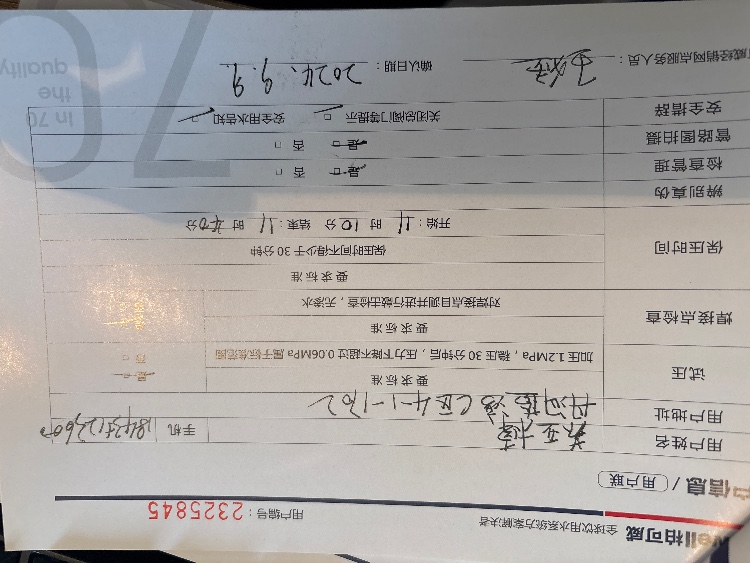 well柏可威 全球饮用水系统方案解决者 用户编号：2325845
户信息 / 用户联
用户姓名 手机
用户地址 C区4-1-1702
试压 要求标准 是 否
加压1.2MPa，稳压30分钟后，压力下降不超过0.06MPa属于标准范围
焊接点检查 要求标准
对焊接点目测并进行敲击检查，无渗水
保压时间 要求标准
保压时间不得少于30分钟
开始：11时10分 结束：11时40分
辨别真伪
检查管理 是 否
管路图拍摄 是 否
安全措辞 关闭总阀门等提示 安全用水告知
威经销网点服务人员： 确认日期：2024.9.9.
In 70
the
quality
70